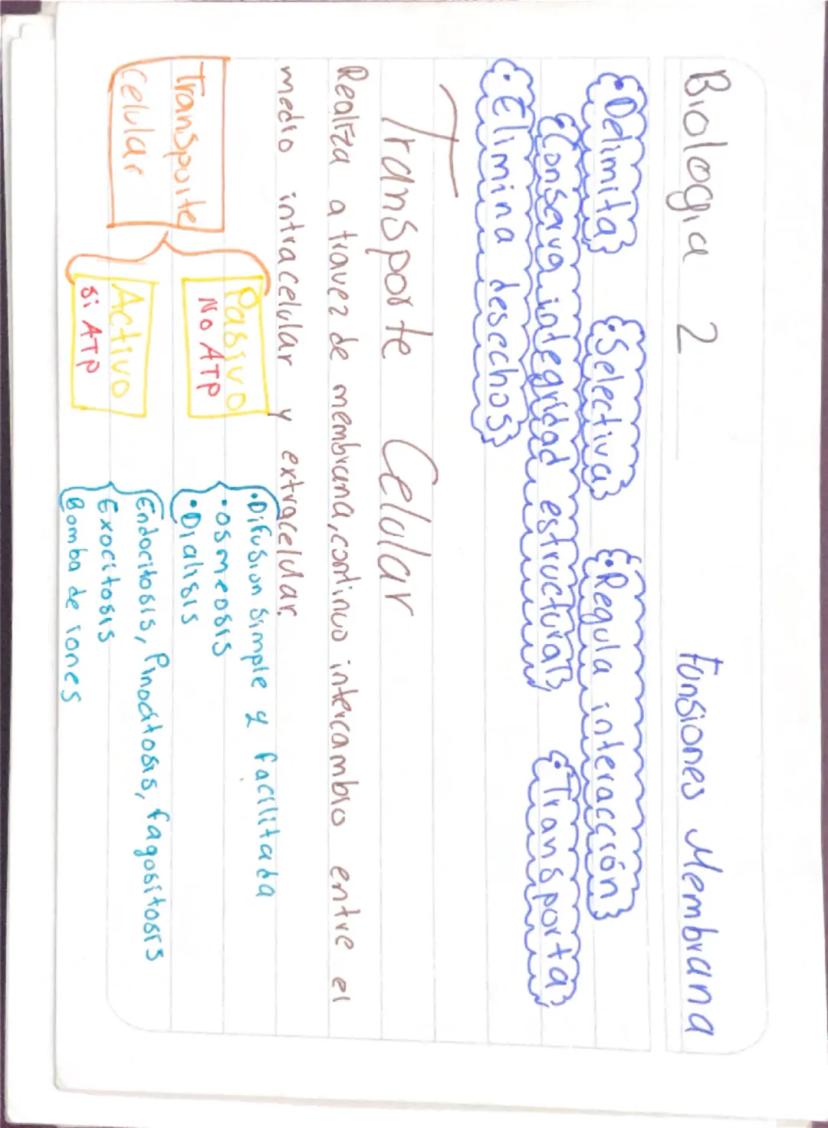 Biologia 2 Funsiones Membrana
• Delimita • Selectiva • Regula interacción
• Conserva integridad estructural • Transporta
• Elimina desechos
Transporte Celular
Realiza a travez de membrana, continuo intercambio entre el
medio intracelular y extracelular.
Transporte
celular
Pasivo
No ATP
• Difusion simple y facilitada
• osmeosis
• Dialisis
Activo
si ATP
Endocitosis, Pinocitosis, fagositosis
Exocitosis
Bomba de iones